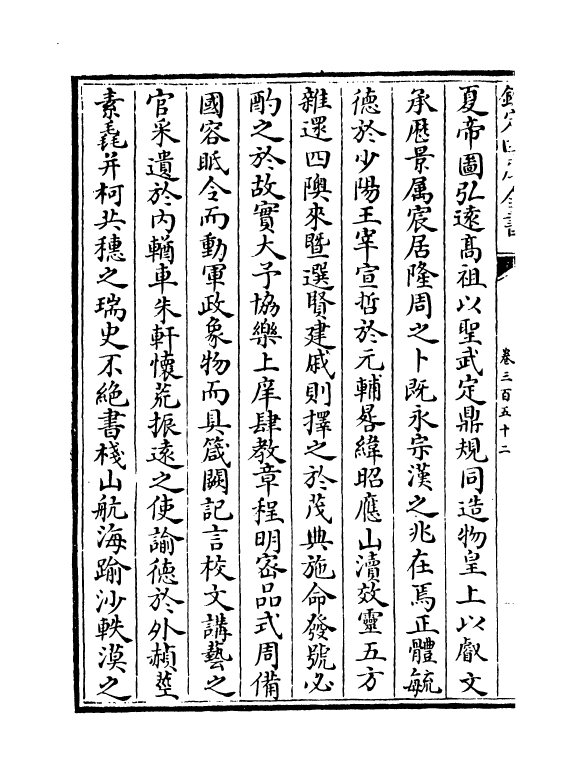 欽定四庫全書
卷三百五十二
夏帝圖弘逺髙祖以聖武定鼎規同造物皇上以叡文
承厯景属宸居隆周之卜既永宗漢之兆在焉正體毓
徳於少陽王宰宣哲於元輔晷緯昭應山瀆效靈五方
雜遝四隩來暨選賢建戚則擇之於茂典施命發號必
酌之於故實大予協樂上庠肆教章程明宻品式周備
國容眡令而動軍政象物而具箴闕記言校文講藝之
官采遺於内輶車朱軒懷荒振逺之使論徳於外赬莖
素毳并柯共穗之瑞史不絶書棧山航海踰沙軼漠之